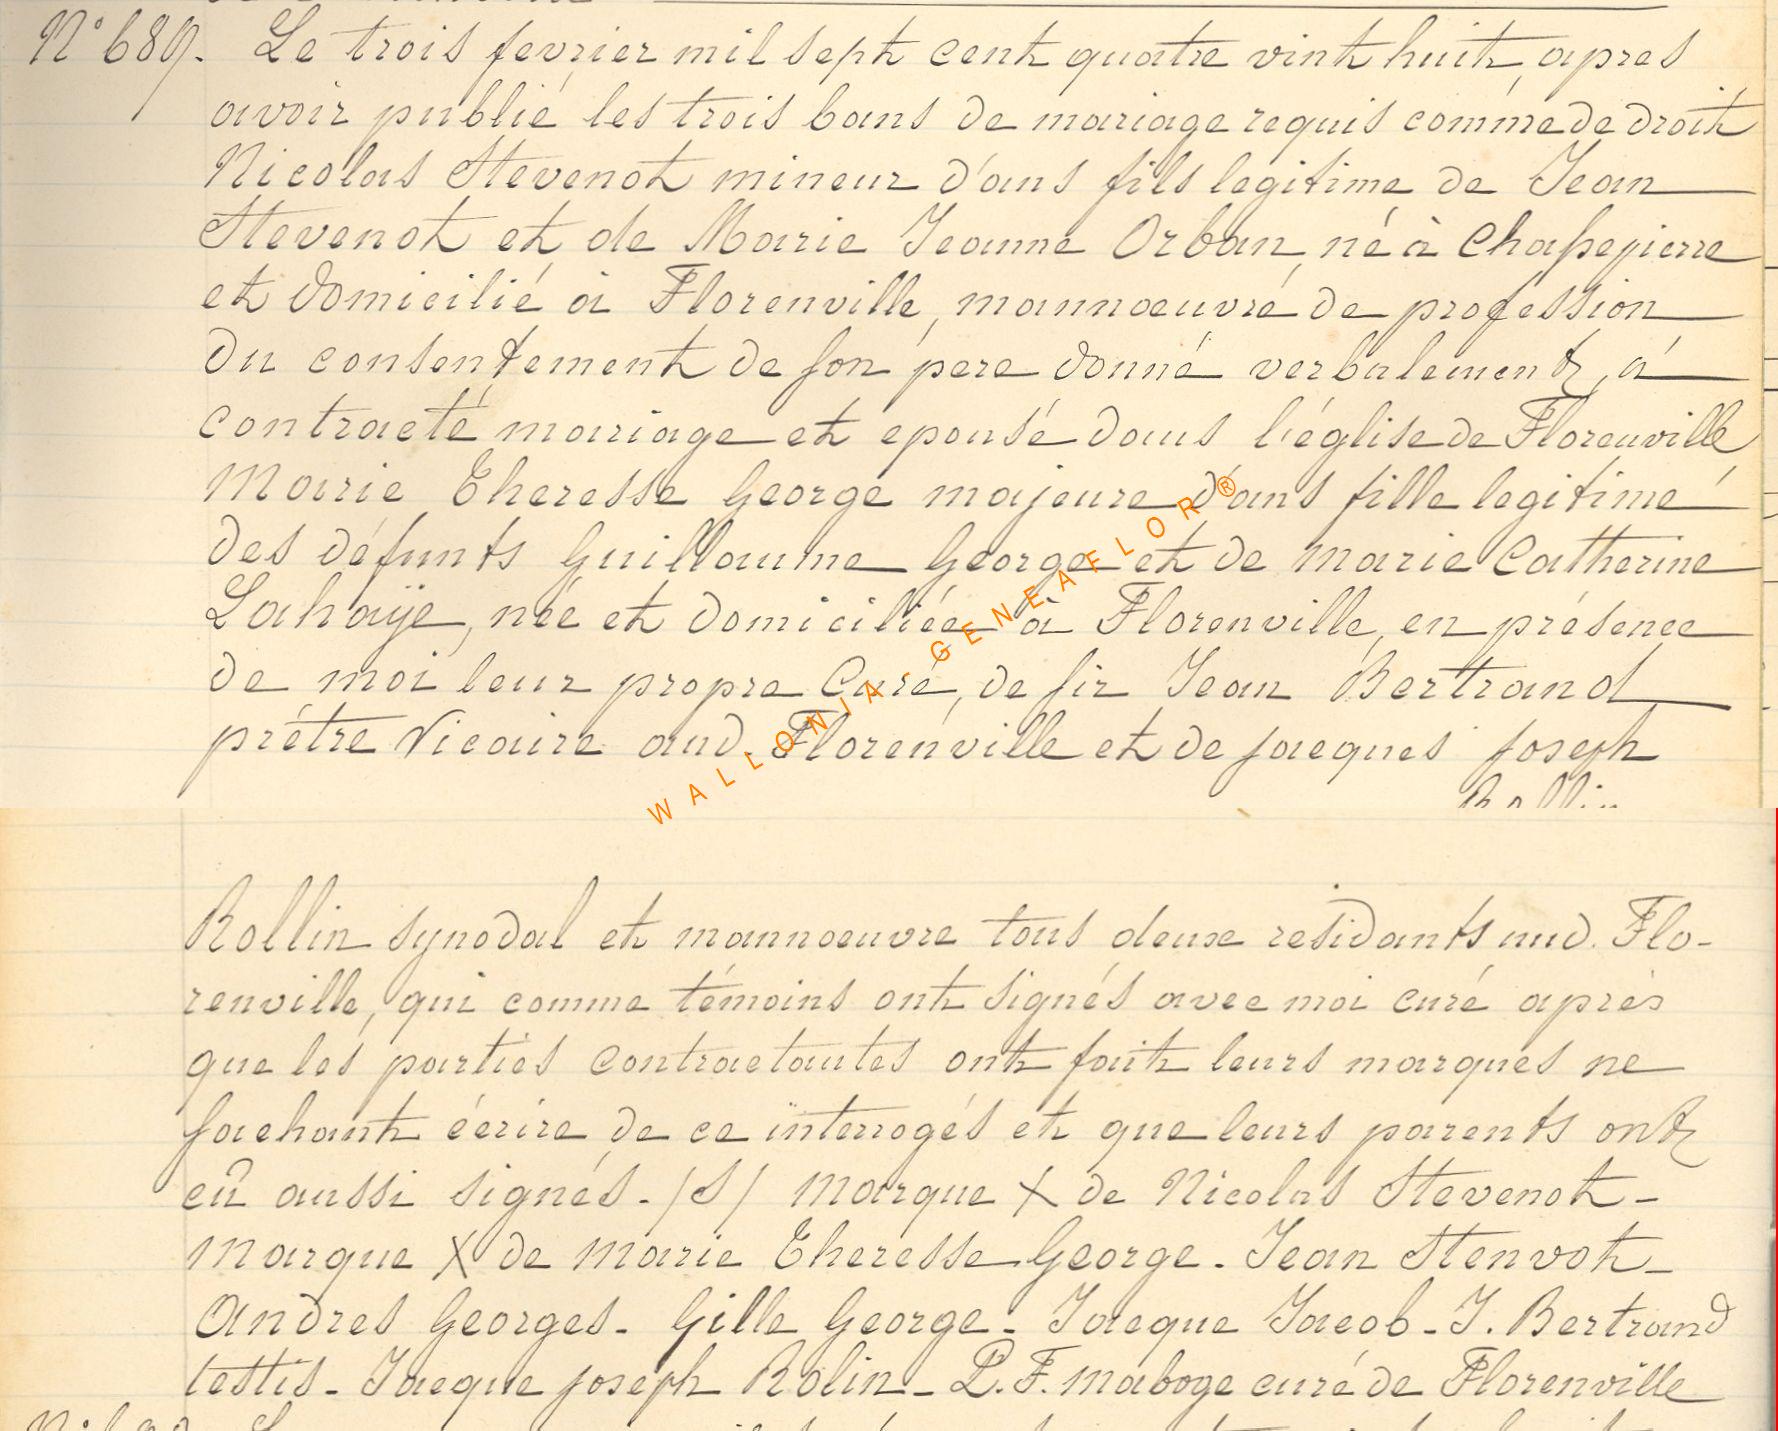 N° 689. Le trois fevrier mil sept cent quatre vint huit, apres
avoir publié les trois bans de mariage requis comme de droit
Nicolas Stevenot mineur d'ans fils legitime de Jean
Stevenot et de Marie Jeanne Orban, né à Chassepierre
et domicilié à Florenville, mannoeuvre de profession
du consentement de son pere donné verbalement, á
contracté mariage et epousé dans l'église de Florenville
Marie Theresse George majeure d'ans fille legitime
des défunts Guillaume George et de Marie Catherine
Lahaÿe, née et domiciliée à Florenville, en présence
de moi leur propre Curé, de sir Jean Bertrand
prêtre Vicaire aud. Florenville et de jacques joseph
Rollin
Rollin synodal et mannoeuvre tous deux residants aud. Flo-
renville, qui comme témoins ont signés avec moi curé après
que les parties contractantes ont fait leurs marques ne
sachant écrire de ce interrogés et que leurs parents ont
eû aussi signés. /S/ Marque X de Nicolas Stevenot -
Marque X de Marie Theresse George. Jean Stenvot -
Andres Georges - Gille George - Jacque Jacob - J. Bertrand
testis - Jacque joseph Rolin - P. F. Maboge curé de Florenville
WALLONIA-GENEAFLOR®